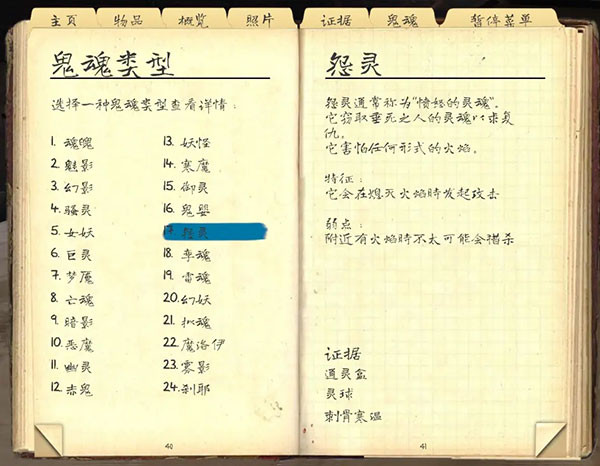 主页 物品 概览 照片 证据 鬼魂 暂停菜单
鬼魂类型
选择一种鬼魂类型查看详情：
1. 魂魄
2. 魅影
3. 幻影
4. 骚灵
5. 女妖
6. 巨灵
7. 梦魇
8. 亡魂
9. 暗影
10. 恶魔
11. 幽灵
12. 赤鬼
13. 妖怪
14. 寒魔
15. 御灵
16. 鬼婴
17. 怨灵
18. 孪魂
19. 雷魂
20. 幻妖
21. 拟魂
22. 魔洛伊
23. 雾影
24. 刹耶
40
怨灵
怨灵通常称为“愤怒的灵魂”。
它窃取垂死之人的灵魂以求复
仇。
它害怕任何形式的火焰。
特征：
它会在熄灭火焰時发起攻击
弱点：
附近有火焰時不太可能会猎杀
证据
通灵盒
灵球
刺骨寒温
41